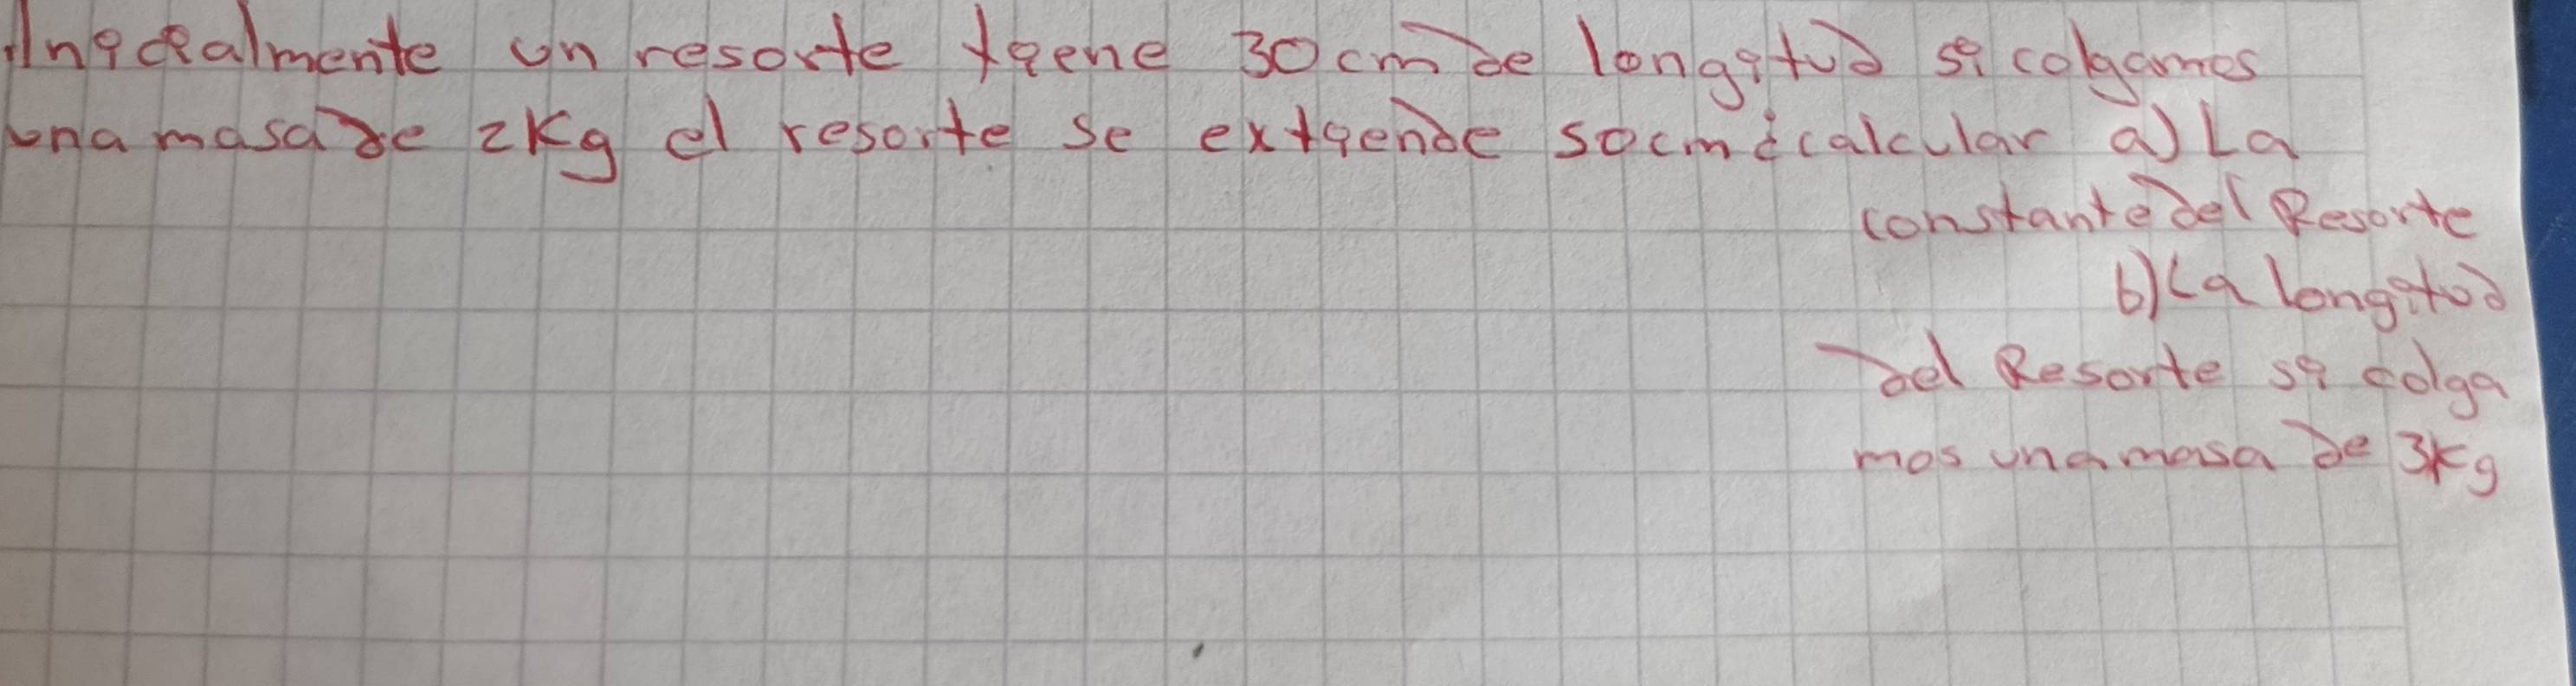 Inicialmente un resorte tiene 30cm de longitud si colgamos
una masa de 2Kg el resorte se extiende 50cm ¿calcular a) La
constante del Resorte
b) La longitud
del Resorte si colga
mos una masa de 3Kg